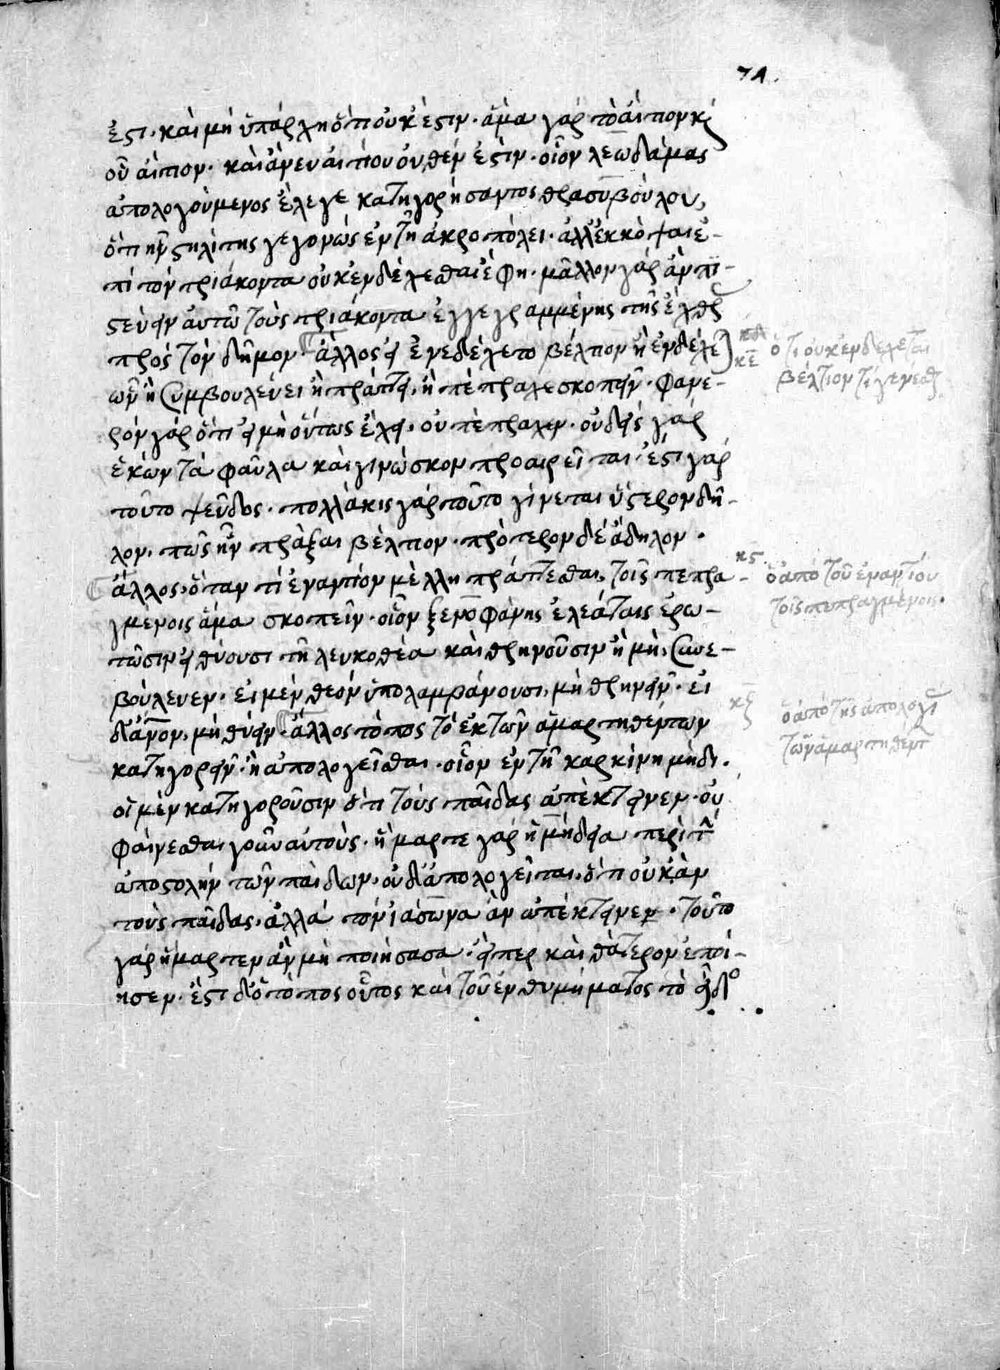 71.
ἔστι· καὶ μὴ ὑπάρχη ὅτι οὐκ ἔστιν· ἅμα γὰρ τὸ αἴτιον καὶ
οὗ αἴτιον· καὶ ἄνευ αἰτίου οὐθέν ἐστιν· οἷον λεωδάμας
ἀπολογούμενος ἔλεγε κατηγορήσαντος θρασυβούλου,
ὅτι ἦν στηλίτης γεγονὼς ἐν τῇ ἀκροπόλει· ἀλλ' ἐκκόψαι ἐ-
πὶ τὸν τριάκοντα οὐκ ἐνδέχεσθαι ἔφη· μᾶλλον γὰρ ἂν πι-
στεύειν αὐτῶ τοὺς τριάκοντα ἐγγεγραμμένης τῆς ἔχθρας
πρὸς τὸν δῆμον· ἄλλος εἰ ἐνεδέχετο βέλτιον ἢ ἐνδέχε)
ὧν ἢ συμβουλεύει ἢ πράττει, ἢ πέπραχε σκοπεῖν· φανε-
ρὸν γὰρ ὅτι εἰ μὴ οὕτως ἔχει, οὐ πέπραχεν· οὐδεὶς γὰρ
ἑκὼν τὰ φαῦλα καὶ γινώσκον προαιρεῖται· ἔστι γὰρ
τοῦτο ψεῦδος· πολλάκις γὰρ τοῦτο γίνεται ὕστερον δῆ-
λον, πῶς ἦν πρᾶξαι βέλτιον· πρότερον δὲ ἄδηλον·
ἄλλος, ὅταν τί ἐναντίον μέλλη πράττεσθαι, τοῖς πεπρα-
γμένοις ἅμα σκοπεῖν· οἷον ξενοφάνης ἐλεάταις ἐρω-
τῶσιν εἰ θύουσι τῆ λευκοθέα καὶ θρηνοῦσιν ἢ μὴ, συνε-
βούλευεν· εἰ μὲν θεὸν ὑπολαμβάνουσι, μὴ θρηνεῖν· εἰ
δ' ἄνον, μὴ θύειν· ἄλλος τόπος τὸ ἐκ τῶν ἁμαρτηθέντων
κατηγορεῖν· ἢ ἀπολογεῖσθαι· οἷον ἐν τῆ καρκίνη μήδι.
οἱ μὲν κατηγοροῦσιν ὅτι τοὺς παῖδας ἀπέκτεινεν· οὐ
φαίνεσθαι γοῦν αὐτοὺς· ἥμαρτε γὰρ ἡ μήδεια περὶ τὴν
ἀποστολὴν τῶν παίδων· ἡ δ' ἀπολογεῖται, ὅτι οὐκ ἂν
τοὺς παῖδας· ἀλλὰ τὸν ἰάσωνα ἂν ἀπέκτεινεν· τοῦτο
γὰρ ἥμαρτεν ἂν μὴ ποιήσασα· εἴπερ καὶ θάτερον ἐποί-
ησεν· ἔστι δ' ὁ τόπος οὗτος καὶ τοῦ ἐνθυμήματος τὸ εἶδο
κε ὅτι οὐκ ἐνδέχεται
βέλτιον τι γενέσθ
κς ὁ ἀπὸ τοῦ ἐναντίου
τοῖς πεπραγμένοις.
κζ ὁ ἀπὸ τῆς ἀπολογί
τῶν ἁμαρτηθέντ